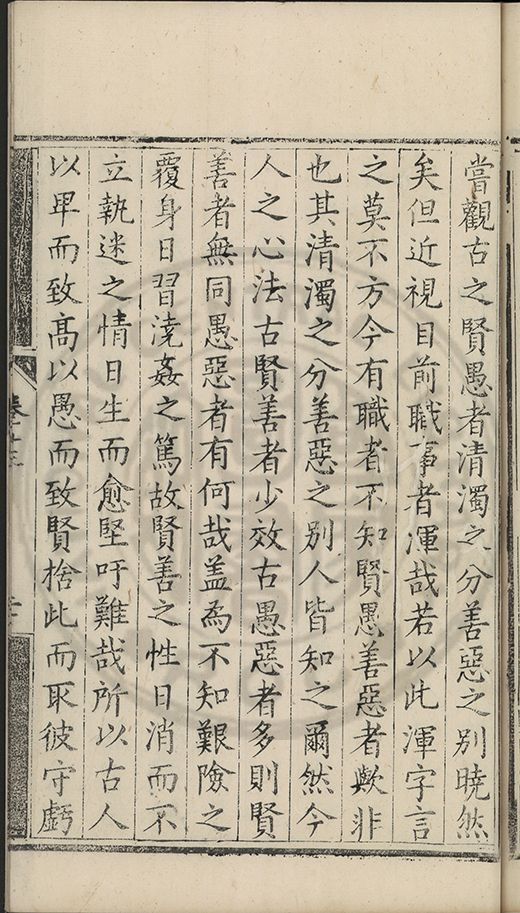 嘗觀古之賢愚者清濁之分善惡之別曉然
矣但近視目前職事者渾哉若以此渾字言
之莫不方今有職者不知賢愚善惡者歟非
也其清濁之分善惡之別人皆知之爾然今
人之心法古賢善者少效古愚惡者多則賢
善者無同愚惡者有何哉盖為不知艱險之
覆身日習澆姦之篤故賢善之性日消而不
立執迷之情日生而愈堅吁難哉所以古人
以卑而致髙以愚而致賢捨此而取彼守虧